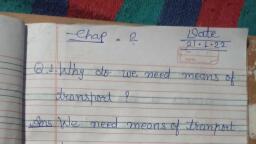 Chap - 2
Date
21.1.22
Q.1 Why do we need means of
transport ?
Ans We need means of tranport